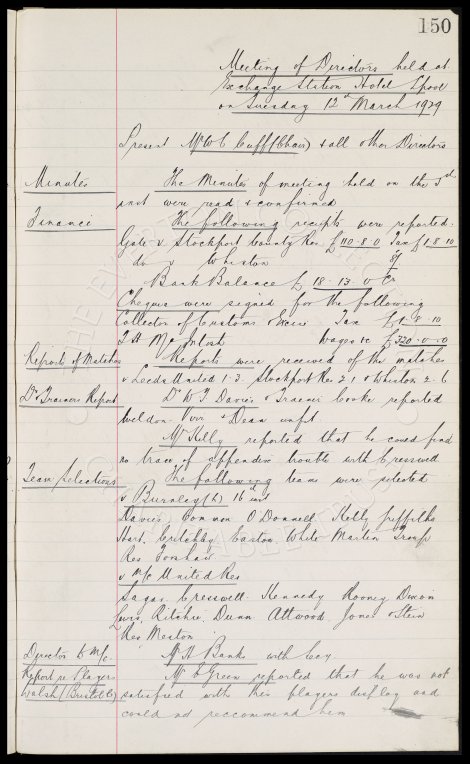 150
Meeting of Directors held at
Exchange Station Hotel Lpool
on Tuesday 12th March 1929
Present Mr W C Cuff (Chair) & all other Directors
Minutes The Minutes of meeting held on the 5th
inst were read & confirmed
Finance The following receipts were reported.
Gate v Stockport County Res £110.8.0 Tax £1.8.10
do v Whiston
Bank Balance £18.13.0 Cr
Cheques were signed for the following
Collector of Customs & Excise Tax £1.8.10
T H McIntosh Wages &c £320.0.0
Reports of Matches Reports were received of the matches
v Leeds United 1.3. Stockport Res 2.1 v Whiston 2.6
Dr & Trainers Report Dr W J Davies & Trainer Cooke reported
Weldon. Virr & Dean unfit
Mr Kelly reported that he could find
no trace of appendix trouble with Cresswell
Team Selections The following teams were selected
v Burnley (h) 16th inst
Davies Common O'Donnell. Kelly Griffiths
Hart. Critchley Easton. White Martin Troup
Res Forshaw
v M/c United Res
Sagar Cresswell. Kennedy Rooney Dixon
Lewis. Ritchie. Dunn Attwood. Jones & Stein
Res Meston
Director to M/c. Mr A Banks with Coy.
Report re Players Mr E Green reported that he was not
Walsh (Bristol C) satisfied with this players display and
could not reccommend him